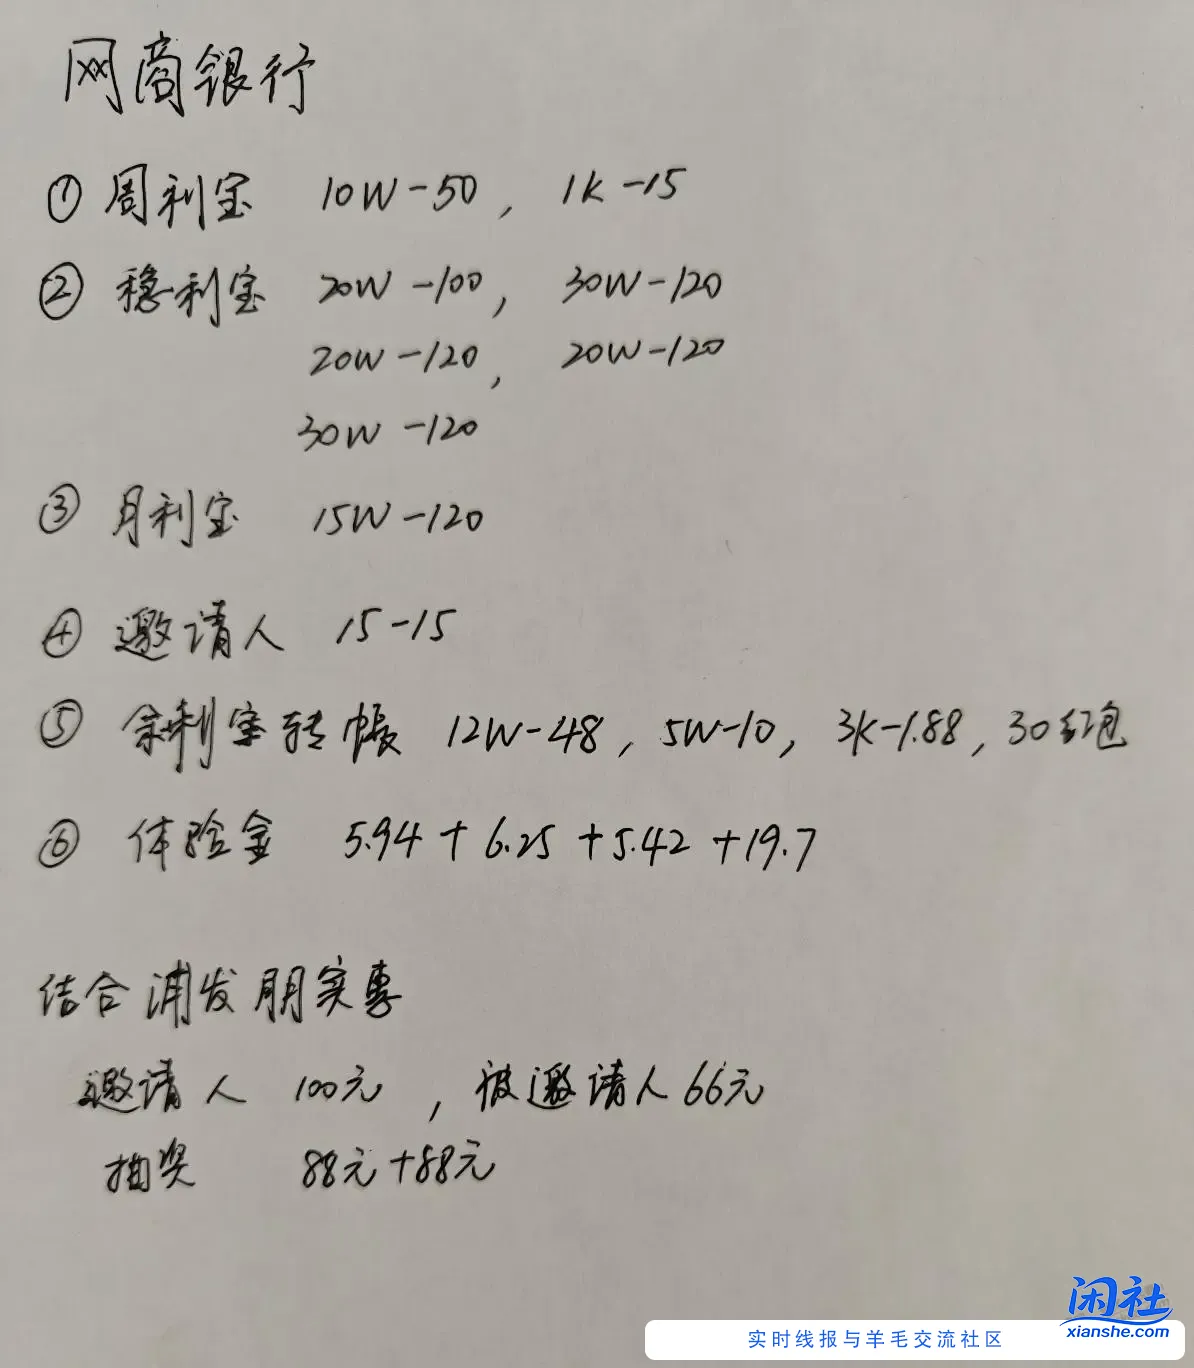 网商银行
① 周利宝 10W-50, 1K-15
② 稳利宝 20W-100, 30W-120
20W-120, 20W-120
30W-120
③ 月利宝 15W-120
④ 邀请人 15-15
⑤ 余利宝转帐 12W-48, 5W-10, 3K-1.88, 30红包
⑥ 体验金 5.94+6.25+5.42+19.7
结合浦发朋实惠
邀请人 100元, 被邀请人66元
抽奖 88元+88元
闲社
xianshe.com
实时线报与羊毛交流社区